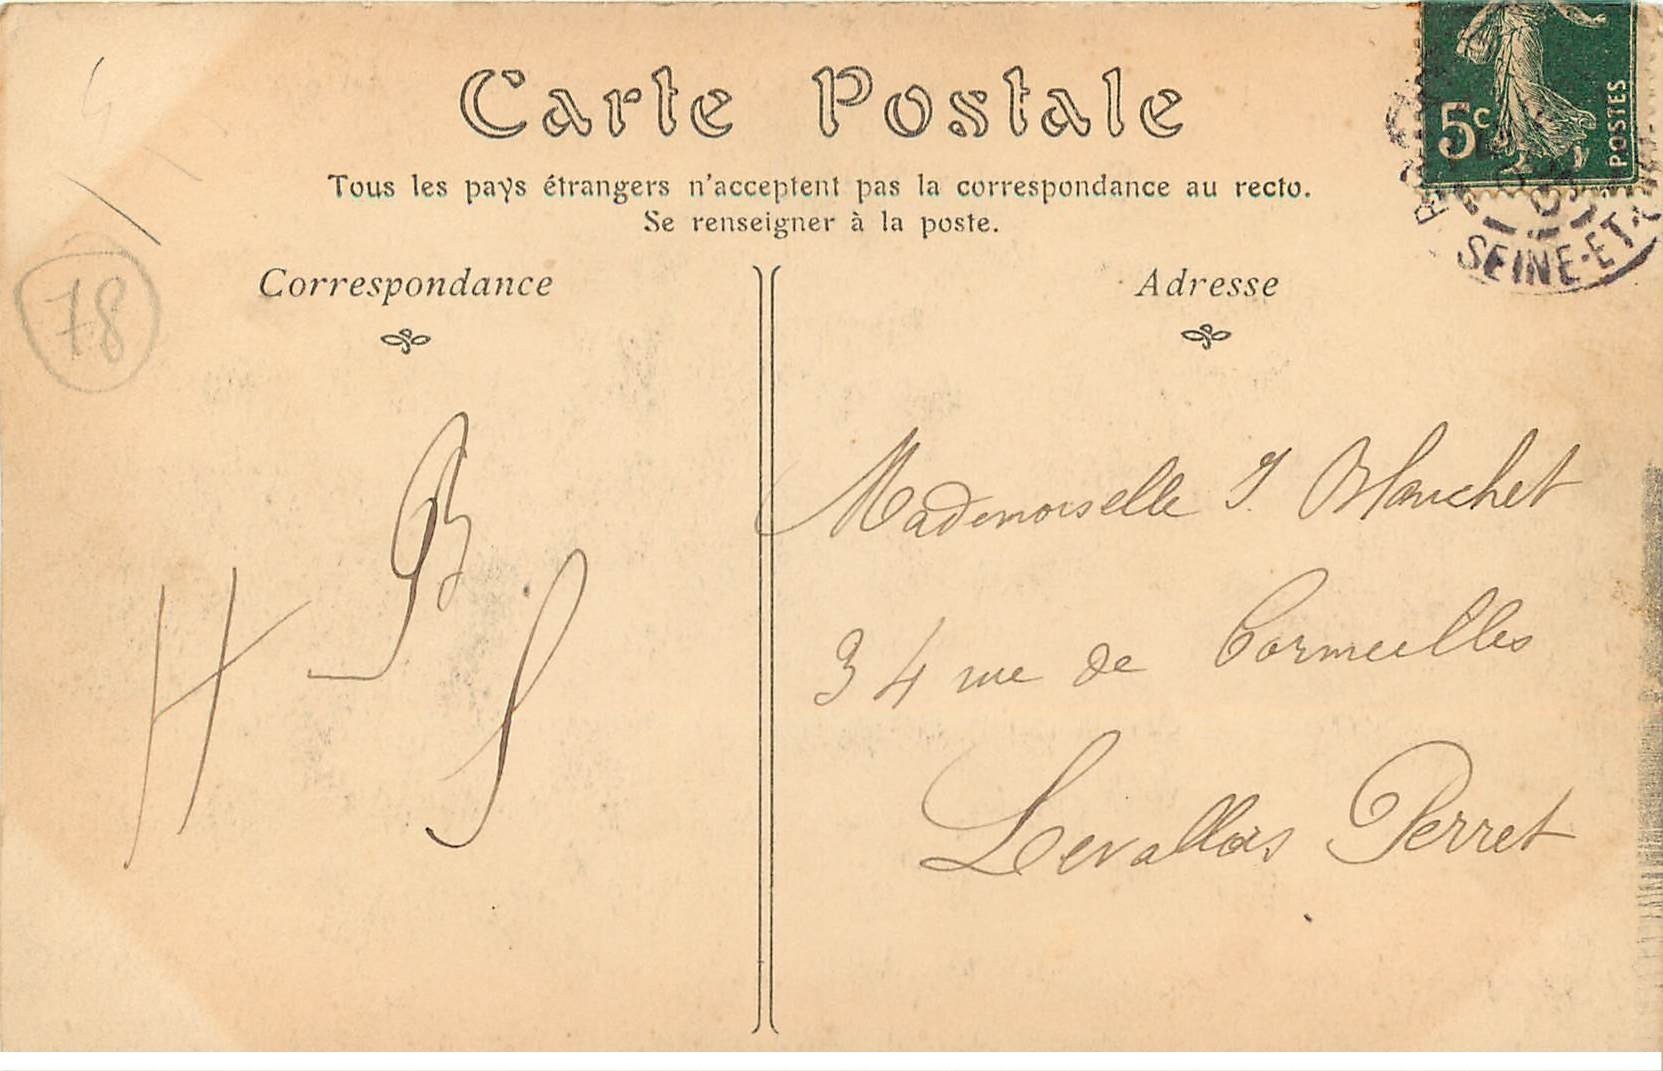 Carte Postale
Tous les pays étrangers n'acceptent pas la correspondance au recto.
Se renseigner à la poste.
5c
POSTES
SEINE-ET-
78
Correspondance
Adresse
H B S
Mademoiselle J. Blanchet
34 rue de Cormeilles
Levallois Perret